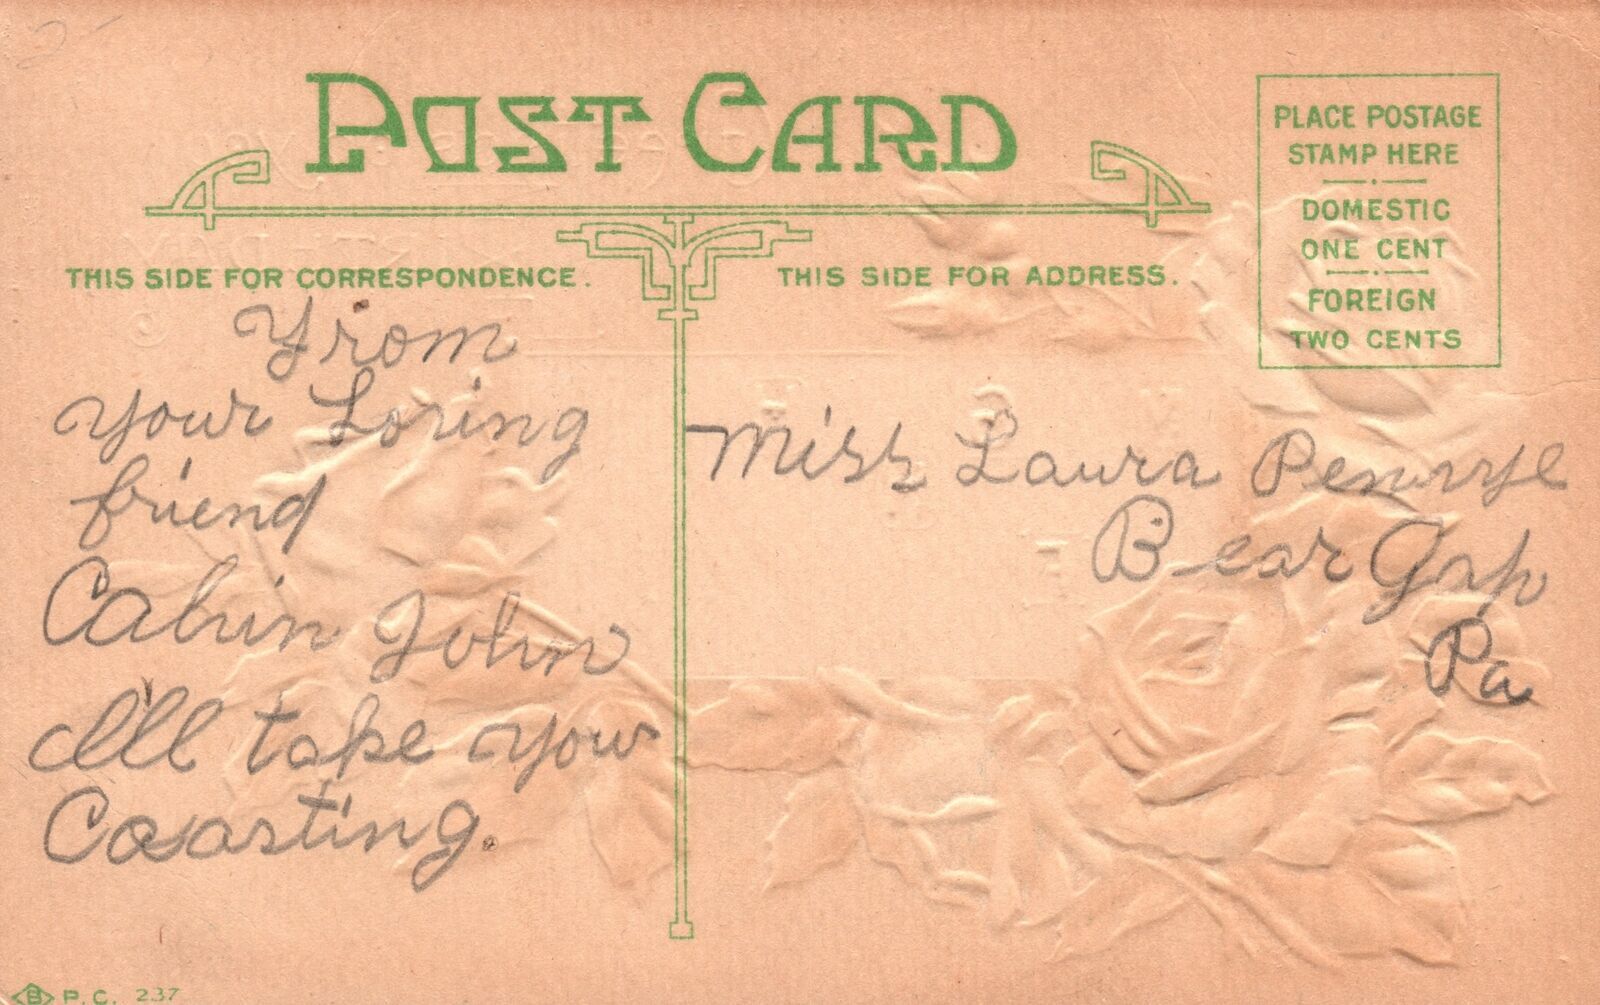 POST CARD
PLACE POSTAGE
STAMP HERE
DOMESTIC
ONE CENT
FOREIGN
TWO CENTS
THIS SIDE FOR CORRESPONDENCE.
THIS SIDE FOR ADDRESS.
From
your Loving
friend
Calvin John
I'll take you
Coasting.
Miss Laura
Bear Gap
Pa
B P.C. 237